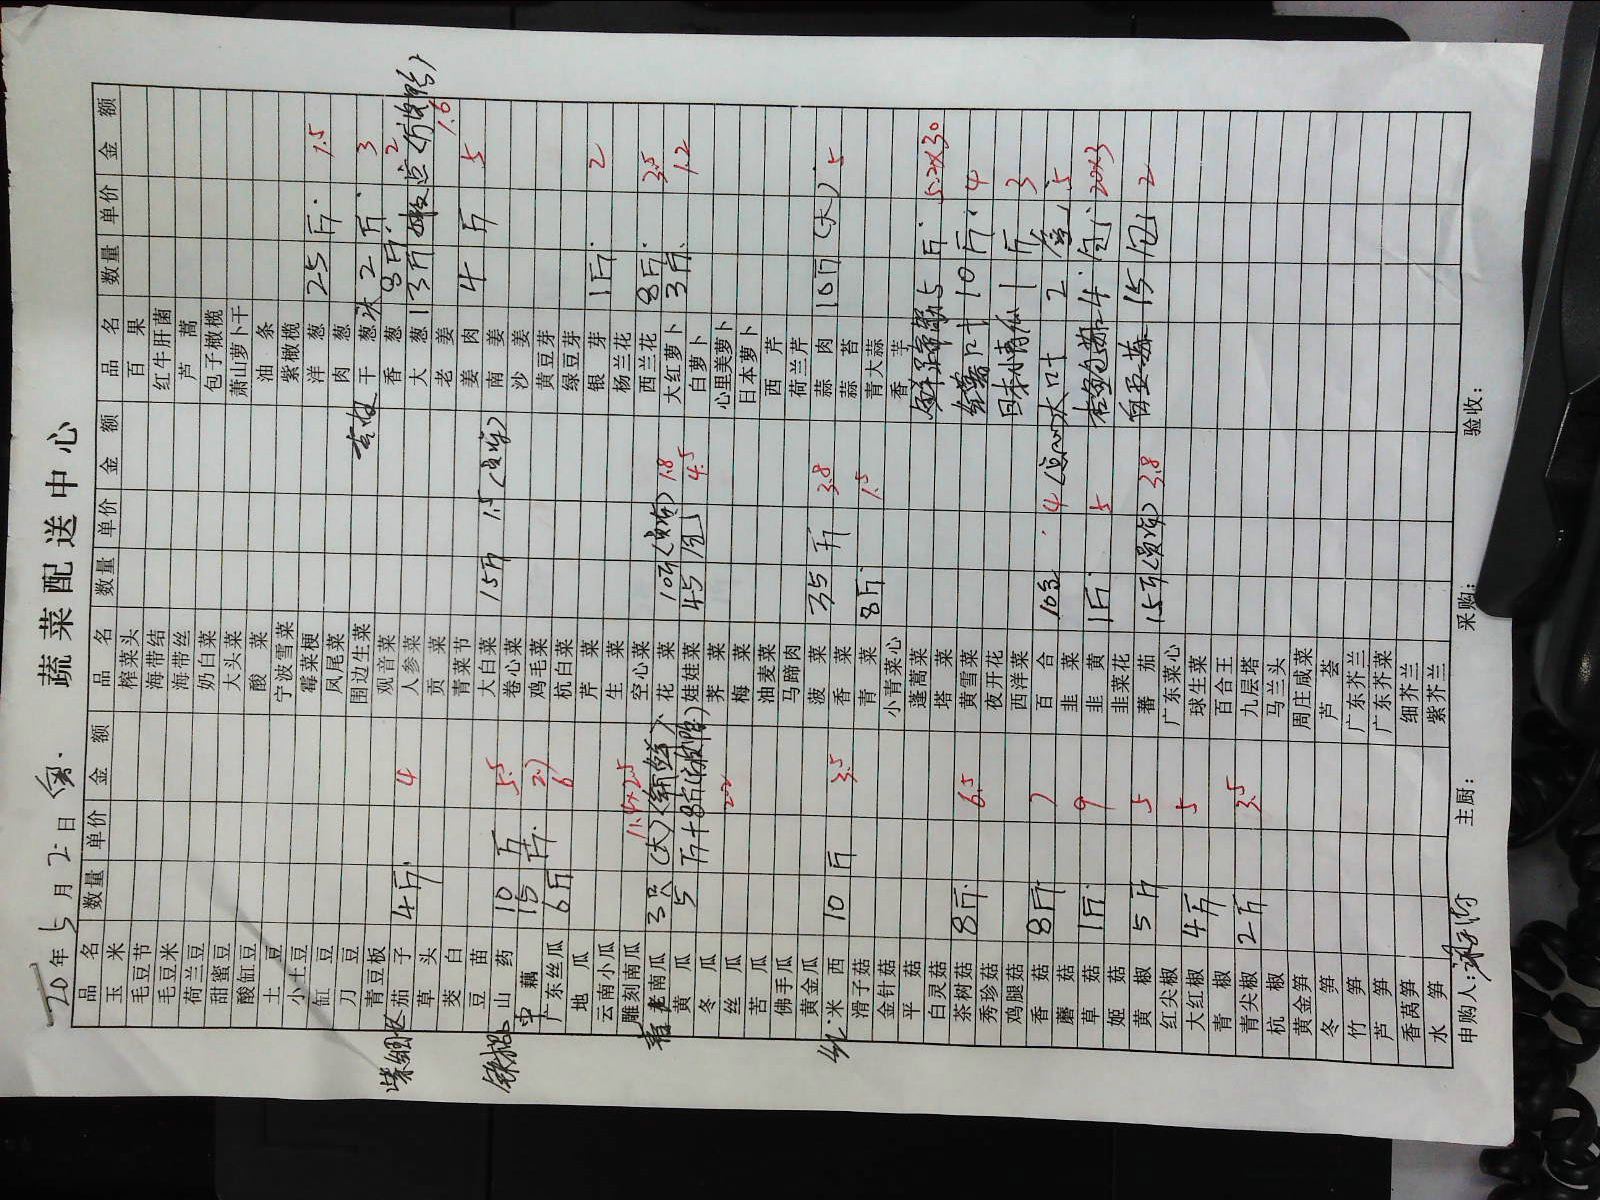 蔬菜配送中心
20 年 5 月 2 日
品名 数量 单价 金额 品名 数量 单价 金额 品名 数量 单价 金额
玉米 榨菜头 百果
毛豆节 海带结 红牛肝菌
毛豆米 海带丝 芦蒿
荷兰豆 奶白菜 包子橄榄
甜蜜豆 大头菜 萧山萝卜干
酸缸豆 酸菜 油条
土豆 宁波雪菜 紫橄榄
小土豆 霉菜梗 洋葱 25斤 1.5
缸豆 凤尾菜 肉葱
刀豆 围边生菜 干葱 2斤 3
青豆板 观音菜 香葱 8斤 2
茄子 4斤 4 人参菜 大葱 13斤 1.6
草头 贡菜 老姜
茭白 青菜节 姜肉 4斤 5
豆苗 大白菜 15斤 1.5 南姜
山药 10斤 5.5 卷心菜 沙姜
中藕 15斤 鸡毛菜 黄豆芽
广东丝瓜 6斤 6 杭白菜 绿豆芽
地瓜 芹菜 银芽 1斤 2
云南小瓜 生菜 杨兰花
雕刻南瓜 11.4x2.5 空心菜 西兰花 8斤 3.5
老南瓜 3只(大) 花菜 10斤 1.8 大红萝卜 3斤 1.2
黄瓜 5斤+8斤 娃娃菜 45包 4.5 白萝卜
冬瓜 荠菜 心里美萝卜
丝瓜 梅菜 日本萝卜
苦瓜 油麦菜 西芹
佛手瓜 马蹄肉 荷兰芹
黄金瓜 菠菜 35斤 3.8 蒜肉 10斤(大) 5
米西 10斤 3.5 香菜 蒜苔
滑子菇 青菜 8斤 1.5 青大蒜
金针菇 小青菜心 香芋
平菇 蓬蒿菜 5斤 5.2x30
白灵菇 塔菜
茶树菇 8斤 6.5 黄雪菜 10斤 4
秀珍菇 夜开花 日本小青瓜 1斤 3
鸡腿菇 西洋菜
香菇 8斤 7 百合 10包 4 大叶 2盒 5
蘑菇 韭菜
草菇 1斤 9 韭黄 1斤 5 20x3
姬菇 韭菜花
黄椒 5斤 5 蕃茄 15斤 3.8 15包 2
红尖椒 广东菜心
大红椒 4斤 5 球生菜
青椒 百合王
青尖椒 2斤 3.5 九层塔
杭椒 马兰头
黄金笋 周庄咸菜
冬笋 芦荟
竹笋 广东芥兰
芦笋 广东芥菜
香莴笋 细芥兰
水笋 紫芥兰
申购人: 主厨: 采购: 验收: